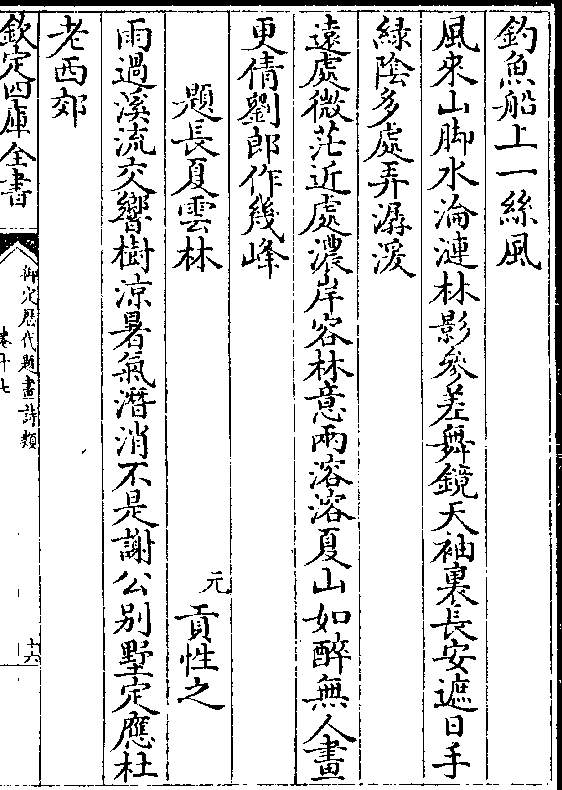 釣魚船上一絲風
風來山脚水淪漣林影參差舞鏡天袖裏長安遮日手
緑陰多處弄潺湲
遠處微茫近處濃岸容林意兩溶溶夏山如醉無人畫
更倩劉郎作幾峰
題長夏雲林
元貢性之
雨過溪流交響樹涼暑氣潛消不是謝公别墅定應杜
老西郊
欽定四庫全書
御定歴代題畫詩類
卷十七
十六